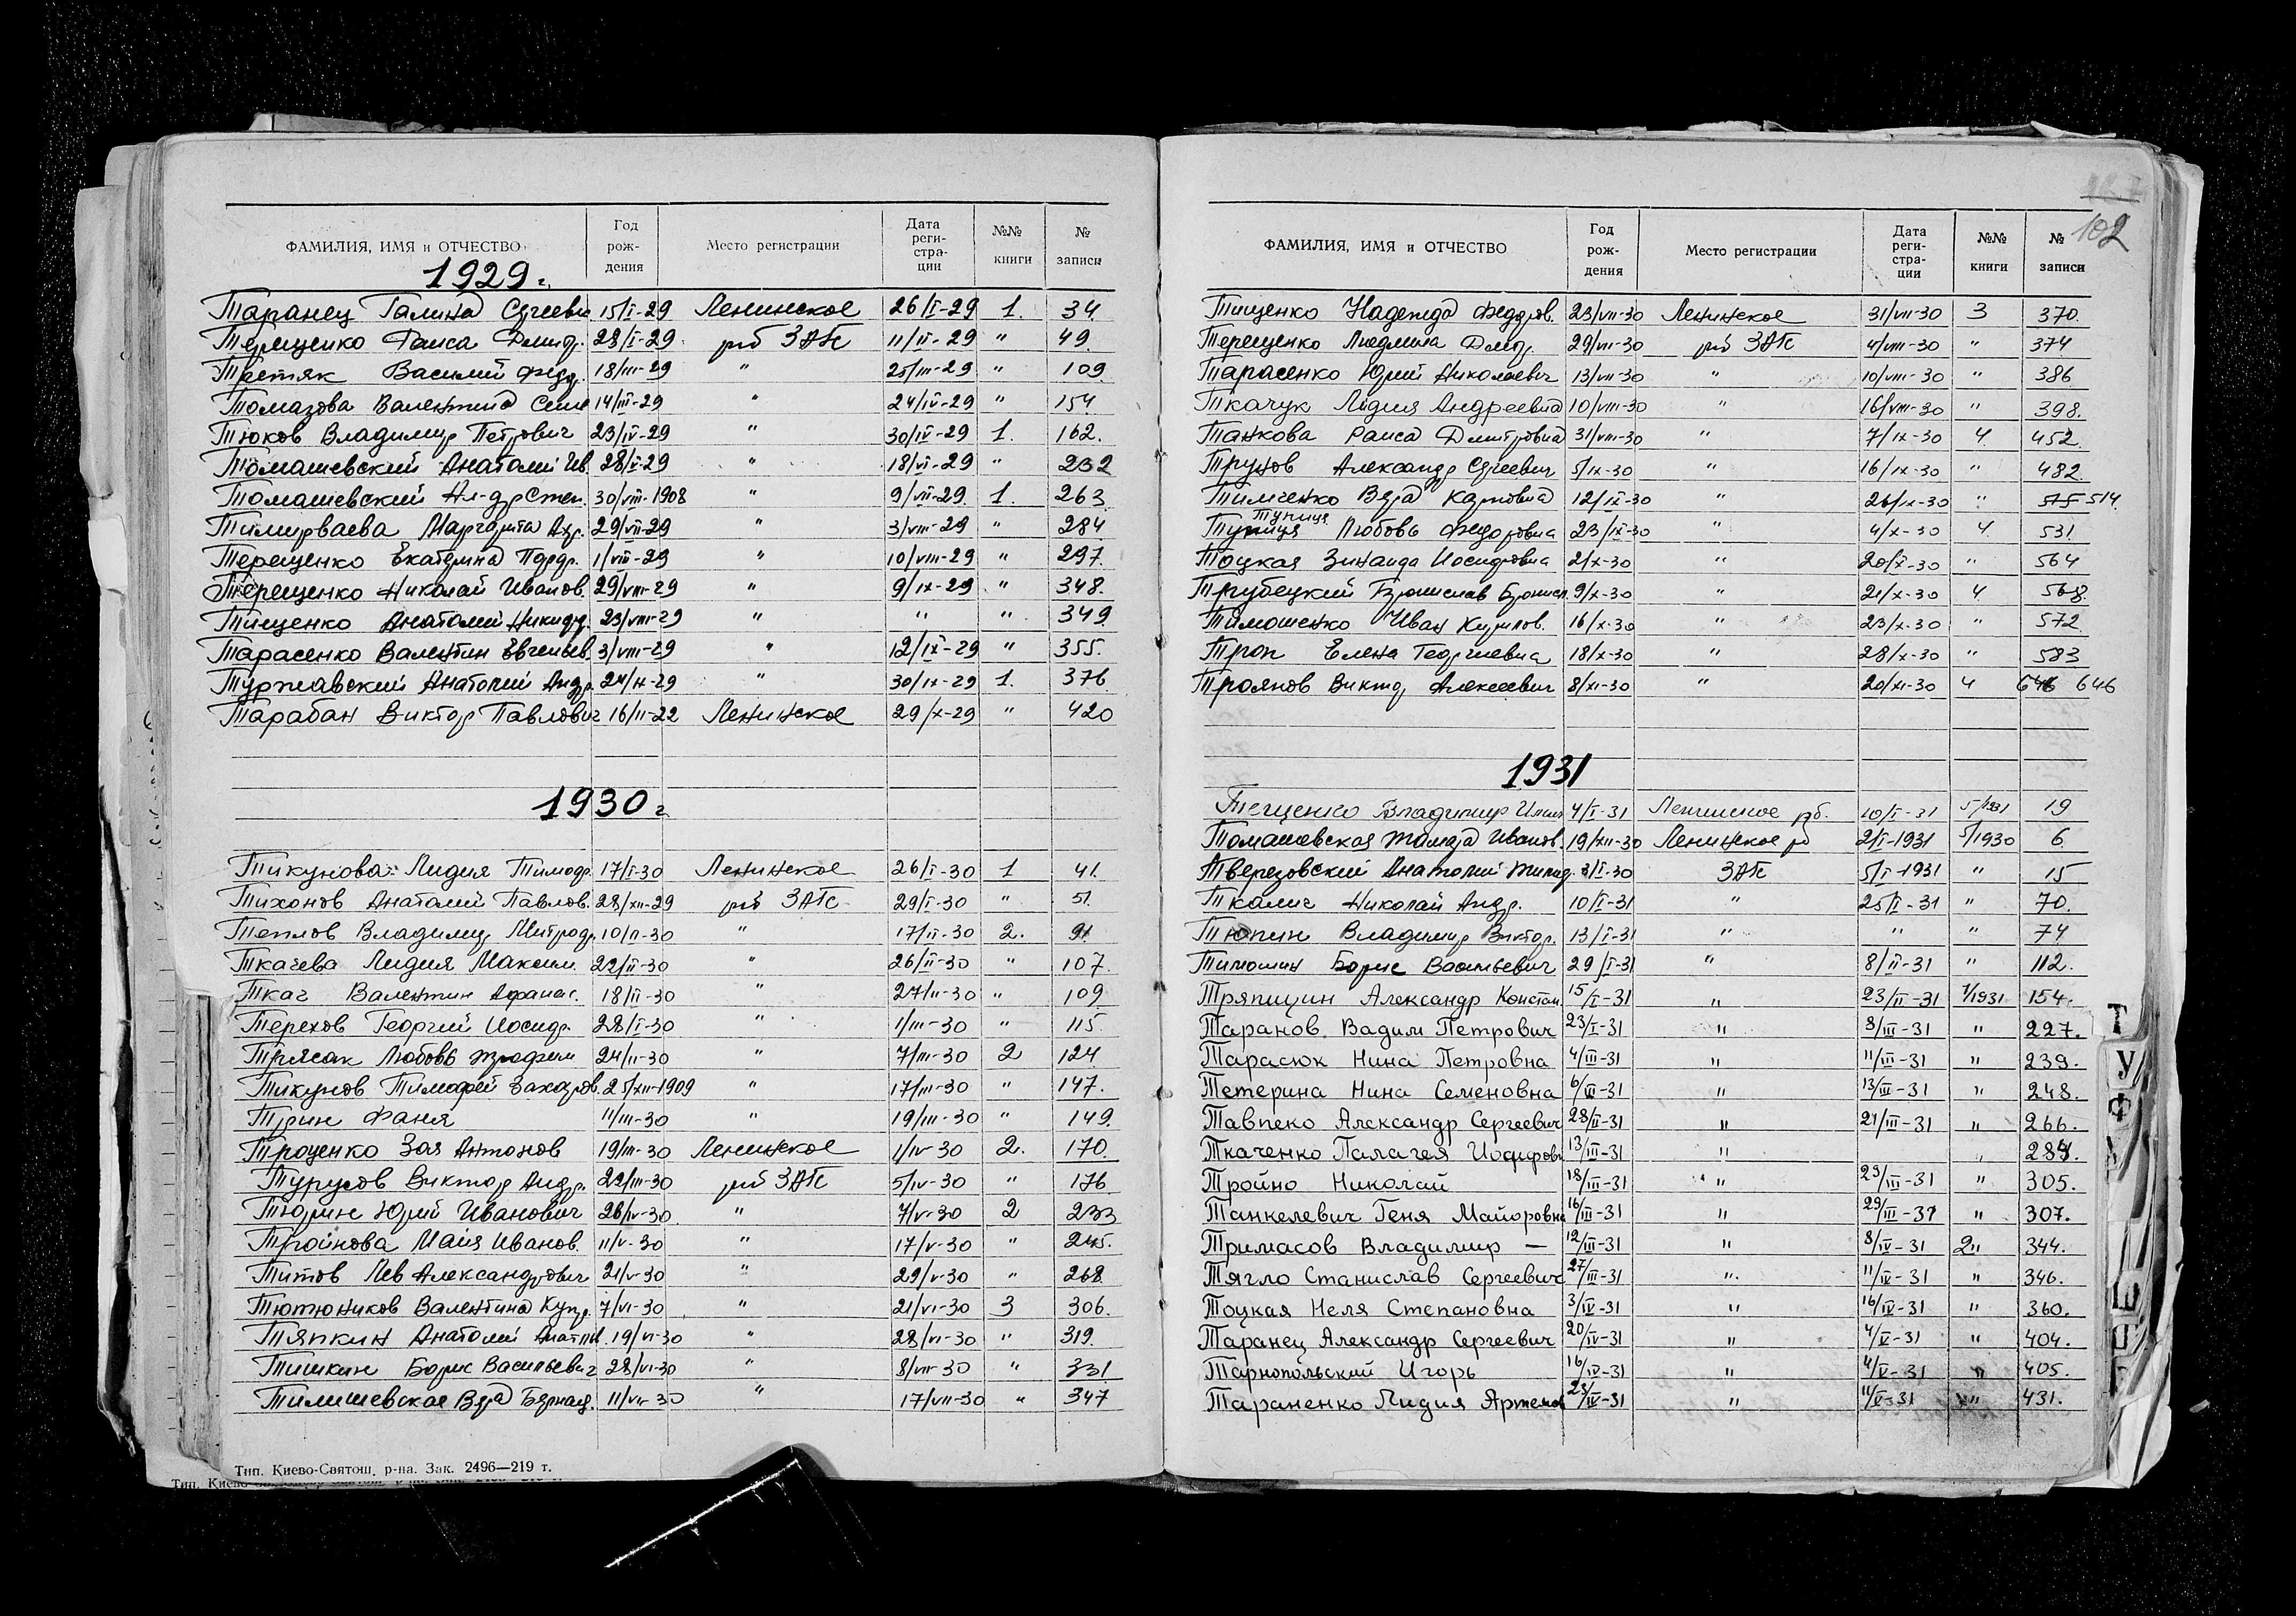 ФАМИЛИЯ, ИМЯ и ОТЧЕСТВО Год рож- дения Место регистрации Дата реги- стра- ции №№ книги № записи
1929 г.
Таранец Галина Сергеевн 15/I-29 Ленинское 26/I-29 1. 34
Терещенко Раиса Дмитр. 28/I-29 рб ЗАГС 11/II-29 " 49.
Третяк Василий Фед. 18/III-29 " 25/III-29 " 109
Томазова Валентина Сем 14/III-29 " 24/IV-29 " 154
Тюков Владимир Петрович 23/IV-29 " 30/IV-29 1. 162.
Томашевский Анатолий Ив. 28/V-29 " 18/VI-29 " 232
Томашевский Ал-др Степ. 30/VIII-1908 " 9/VII-29 1. 263
Тимирваева Маргарита 29/VII-29 " 3/VIII-29 " 284
Терещенко Екатерина 1/VIII-29 " 10/VIII-29 " 297.
Терещенко Николай Иванов. 29/VIII-29 " 9/IX-29 " 348.
Тищенко Анатолий Никиф. 23/VIII-29 " " " 349
Тарасенко Валентин Евгеньев. 3/VIII-29 " 12/IX-29 " 355.
Туржавский Анатолий Андр. 24/IX-29 " 30/IX-29 1. 376
Тарабан Виктор Павлович 16/II-22 Ленинское 29/X-29 " 420
1930 г
Тикунова Лидия Тимоф. 17/I-30 Ленинское 26/I-30 1 41.
Тихонов Анатолий Павлов. 28/XII-29 рб ЗАГС 29/I-30 " 51.
Теплов Владимир Митроф. 10/II-30 " 17/II-30 2. 91
Ткачева Лидия Максим. 22/II-30 " 26/II-30 " 107.
Ткач Валентин Афанас. 18/II-30 " 27/II-30 " 109
Терехов Георгий Иосиф. 28/I-30 " 1/III-30 " 115
Трясак Любовь Трофим 24/II-30 " 7/III-30 2 124
Тикунов Тимофей Захаров. 25/XII-1909 " 17/III-30 " 147.
Трин Фаня 11/III-30 " 19/III-30 " 149.
Троценко Зоя Антонов 19/III-30 Ленинское 1/IV-30 2. 170.
Турусов Виктор Андр. 22/III-30 рб ЗАГС 5/IV-30 " 176
Тюрин Юрий Иванович 26/IV-30 " 7/V-30 2 233
Тройнова Майя Иванов. 11/V-30 " 17/V-30 " 245.
Титов Лев Александрович 21/V-30 " 29/V-30 " 268
Тютюников Валентина Купр. 7/VI-30 " 21/VI-30 3 306.
Тяпкин Анатолий Анатол. 19/VI-30 " 28/VI-30 " 319.
Тишкин Борис Васильевич 28/VI-30 " 8/VII-30 " 331
Тилишевская Вера Бернад. 11/VII-30 " 17/VII-30 " 347
Тип. Киево-Святош. р-на. Зак. 2496—219 т.
102
ФАМИЛИЯ, ИМЯ и ОТЧЕСТВО Год рож- дения Место регистрации Дата реги- стра- ции №№ книги № записи
Тищенко Надежда Федоров. 23/VII-30 Ленинское 31/VII-30 3 370.
Терещенко Людмила Дмитр. 29/VII-30 рб ЗАГС 4/VIII-30 " 374
Тарасенко Юрий Николаевич 13/VII-30 " 10/VIII-30 " 386
Ткачук Лідия Андреевна 10/VIII-30 " 16/VIII-30 " 398.
Танкова Раиса Дмитровна 31/VIII-30 " 7/IX-30 4. 452
Трунов Александр Сергеевич 5/IX-30 " 16/IX-30 " 482
Тимченко Вера Карповна 12/IX-30 " 26/IX-30 " 514.
Туница
Туница Любовь Федоровна 23/IX-30 " 4/X-30 4. 531
Тоцкая Зинаида Иосифовна 2/X-30 " 20/X-30 " 564
Трубецкий Бронислав Бронисл. 9/X-30 " 21/X-30 4 568
Тимошенко Иван Кирилов. 16/X-30 " 23/X-30 " 572
Троп Елена Георгиевна 18/X-30 " 28/X-30 " 583
Троянов Виктор Алексеевич 8/XI-30 " 20/XI-30 4 646 646
1931
Тещенко Владимир 4/I-31 Ленинское рб. 10/I-31 5/1931 19
Томашевская Тамара Иванов. 19/XII-30 Ленинское р 2/I-1931 5/1930 6
Тверезовский Анатолий 3/I-30 ЗАГС 5/I-1931 " 15
Ткалич Николай Андр. 10/I-31 " 25/I-31 " 70.
Тюпин Владимир Виктор. 13/I-31 " " " 74
Тимошин Борис Васильевич 29/I-31 " 8/II-31 " 112.
Тряпицин Александр Констан. 15/I-31 " 23/II-31 1/1931 154.
Таранов Вадим Петрович 23/I-31 " 8/III-31 " 227.
Тарасюк Нина Петровна 4/III-31 " 11/III-31 " 239.
Тетерина Нина Семеновна 6/III-31 " 13/III-31 " 248.
Тавпеко Александр Сергеевич 28/II-31 " 21/III-31 " 266.
Ткаченко Палагея Иосифовн 13/III-31 " " 284.
Тройно Николай 18/III-31 " 29/III-31 " 305.
Танкелевич Геня Майоровна 16/III-31 " 29/III-31 " 307.
Тримасов Владимир — 12/III-31 " 8/IV-31 2" 344.
Тягло Станислав Сергеевич 27/III-31 " 11/IV-31 " 346.
Тоцкая Неля Степановна 3/IV-31 " 16/IV-31 " 360.
Таранец Александр Сергеевич 20/IV-31 " 4/V-31 " 404.
Тарнопольский Игорь 16/IV-31 " 4/V-31 " 405.
Тараненко Лидия Артемов 23/IV-31 " 11/V-31 " 431.
Т
У
Ф
Ш